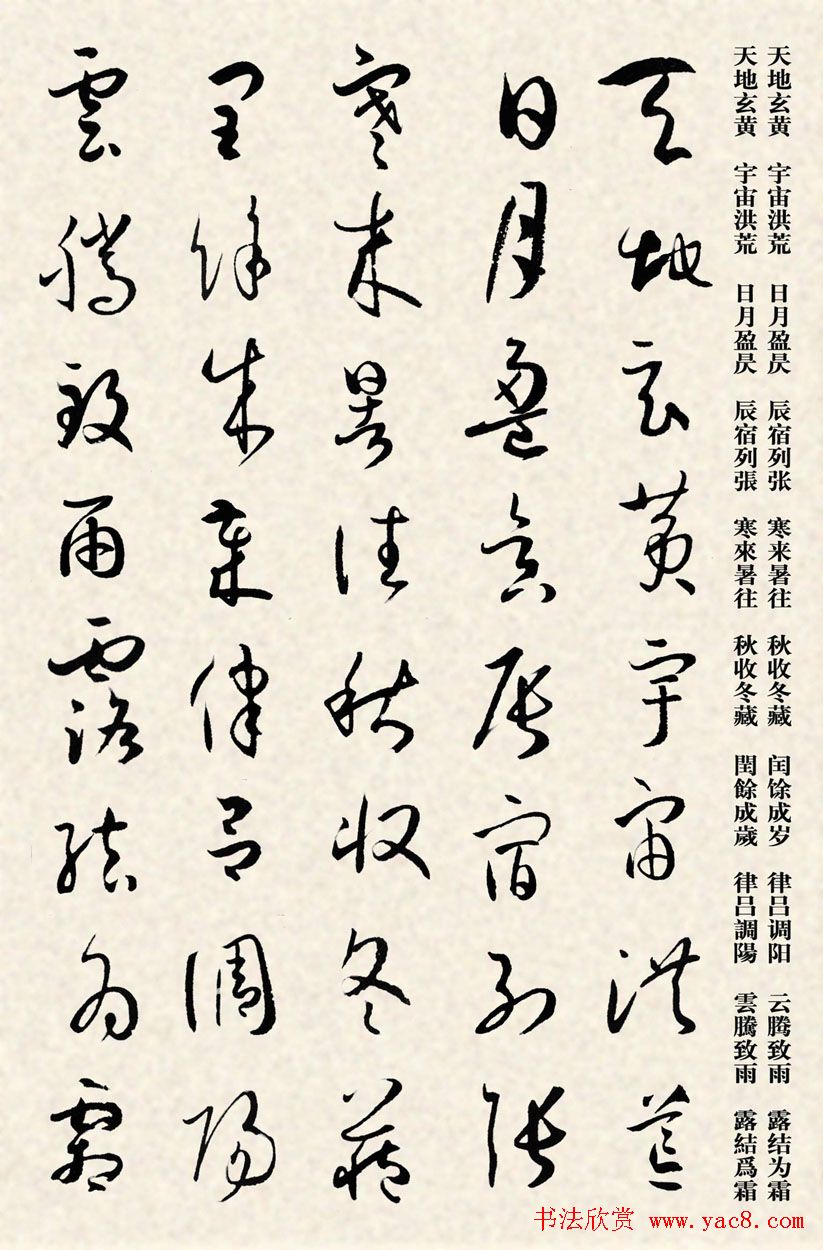 天地玄黄 宇宙洪荒 日月盈昃 辰宿列张 寒来暑往 秋收冬藏 闰馀成岁 律吕调阳 云腾致雨 露结为霜
天地玄黄 宇宙洪荒 日月盈昃 辰宿列張 寒來暑往 秋收冬藏 閏餘成歲 律吕調陽 雲騰致雨 露結爲霜
天地玄黄宇宙洪荒
日月盈昃辰宿列張
寒来暑往秋收冬藏
閏餘成歲律吕調陽
雲騰致雨露結為霜
书法欣赏 www.yac8.com